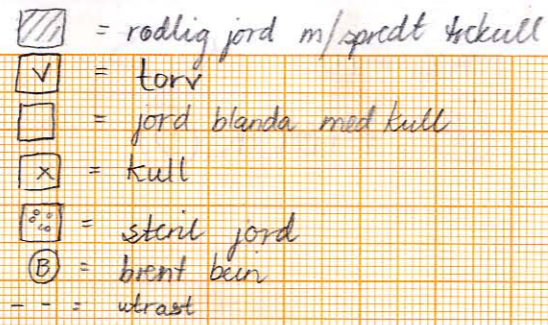 = rødlig jord m/spredt trekull
V = torv
= jord blanda med kull
x = kull
= steril jord
B = brent bein
-- = utrast